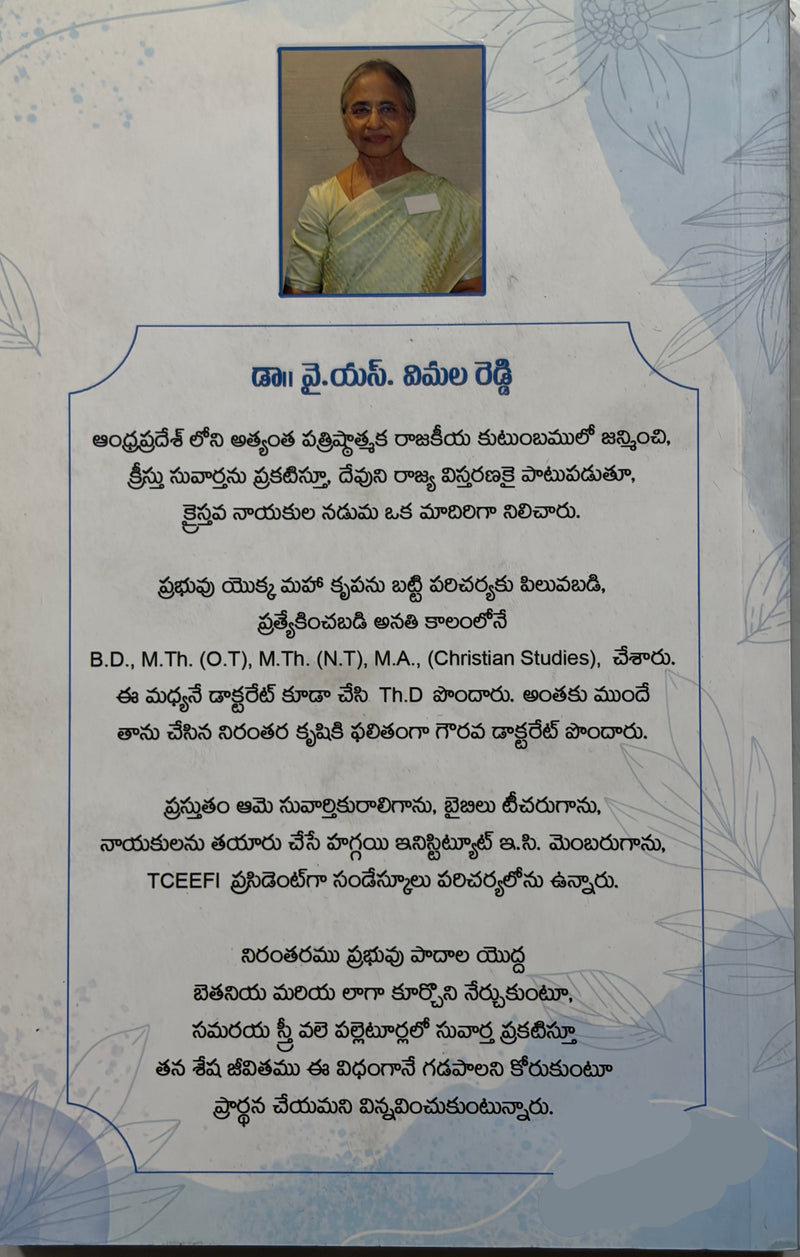 డా॥ వై.యస్. విమల రెడ్డి
ఆంధ్రప్రదేశ్ లోని అత్యంత పత్రిష్ఠాత్మక రాజకీయ కుటుంబములో జన్మించి,
క్రీస్తు సువార్తను ప్రకటిస్తూ, దేవుని రాజ్య విస్తరణకై పాటుపడుతూ,
క్రైస్తవ నాయకుల నడుమ ఒక మాదిరిగా నిలిచారు.
ప్రభువు యొక్క మహా కృపను బట్టి పరిచర్యకు పిలువబడి,
ప్రత్యేకించబడి అనతి కాలంలోనే
B.D., M.Th. (O.T), M.Th. (N.T), M.A., (Christian Studies), చేశారు.
ఈ మధ్యనే డాక్టరేట్ కూడా చేసి Th.D పొందారు. అంతకు ముందే
తాను చేసిన నిరంతర కృషికి ఫలితంగా గౌరవ డాక్టరేట్ పొందారు.
ప్రస్తుతం ఆమె సువార్తికురాలిగాను, బైబిలు టీచరుగాను,
నాయకులను తయారు చేసే హగ్గయి ఇనిస్టిట్యూట్ ఇ.సి. మెంబరుగాను,
TCEEFI ప్రసిడెంట్‌గా సండేస్కూలు పరిచర్యలోను ఉన్నారు.
నిరంతరము ప్రభువు పాదాల యొద్ద
బెతనియ మరియ లాగా కూర్చొని నేర్చుకుంటూ,
సమరయ స్త్రీ వలె పల్లెటూర్లలో సువార్త ప్రకటిస్తూ
తన శేష జీవితము ఈ విధంగానే గడపాలని కోరుకుంటూ
ప్రార్థన చేయమని విన్నవించుకుంటున్నారు.